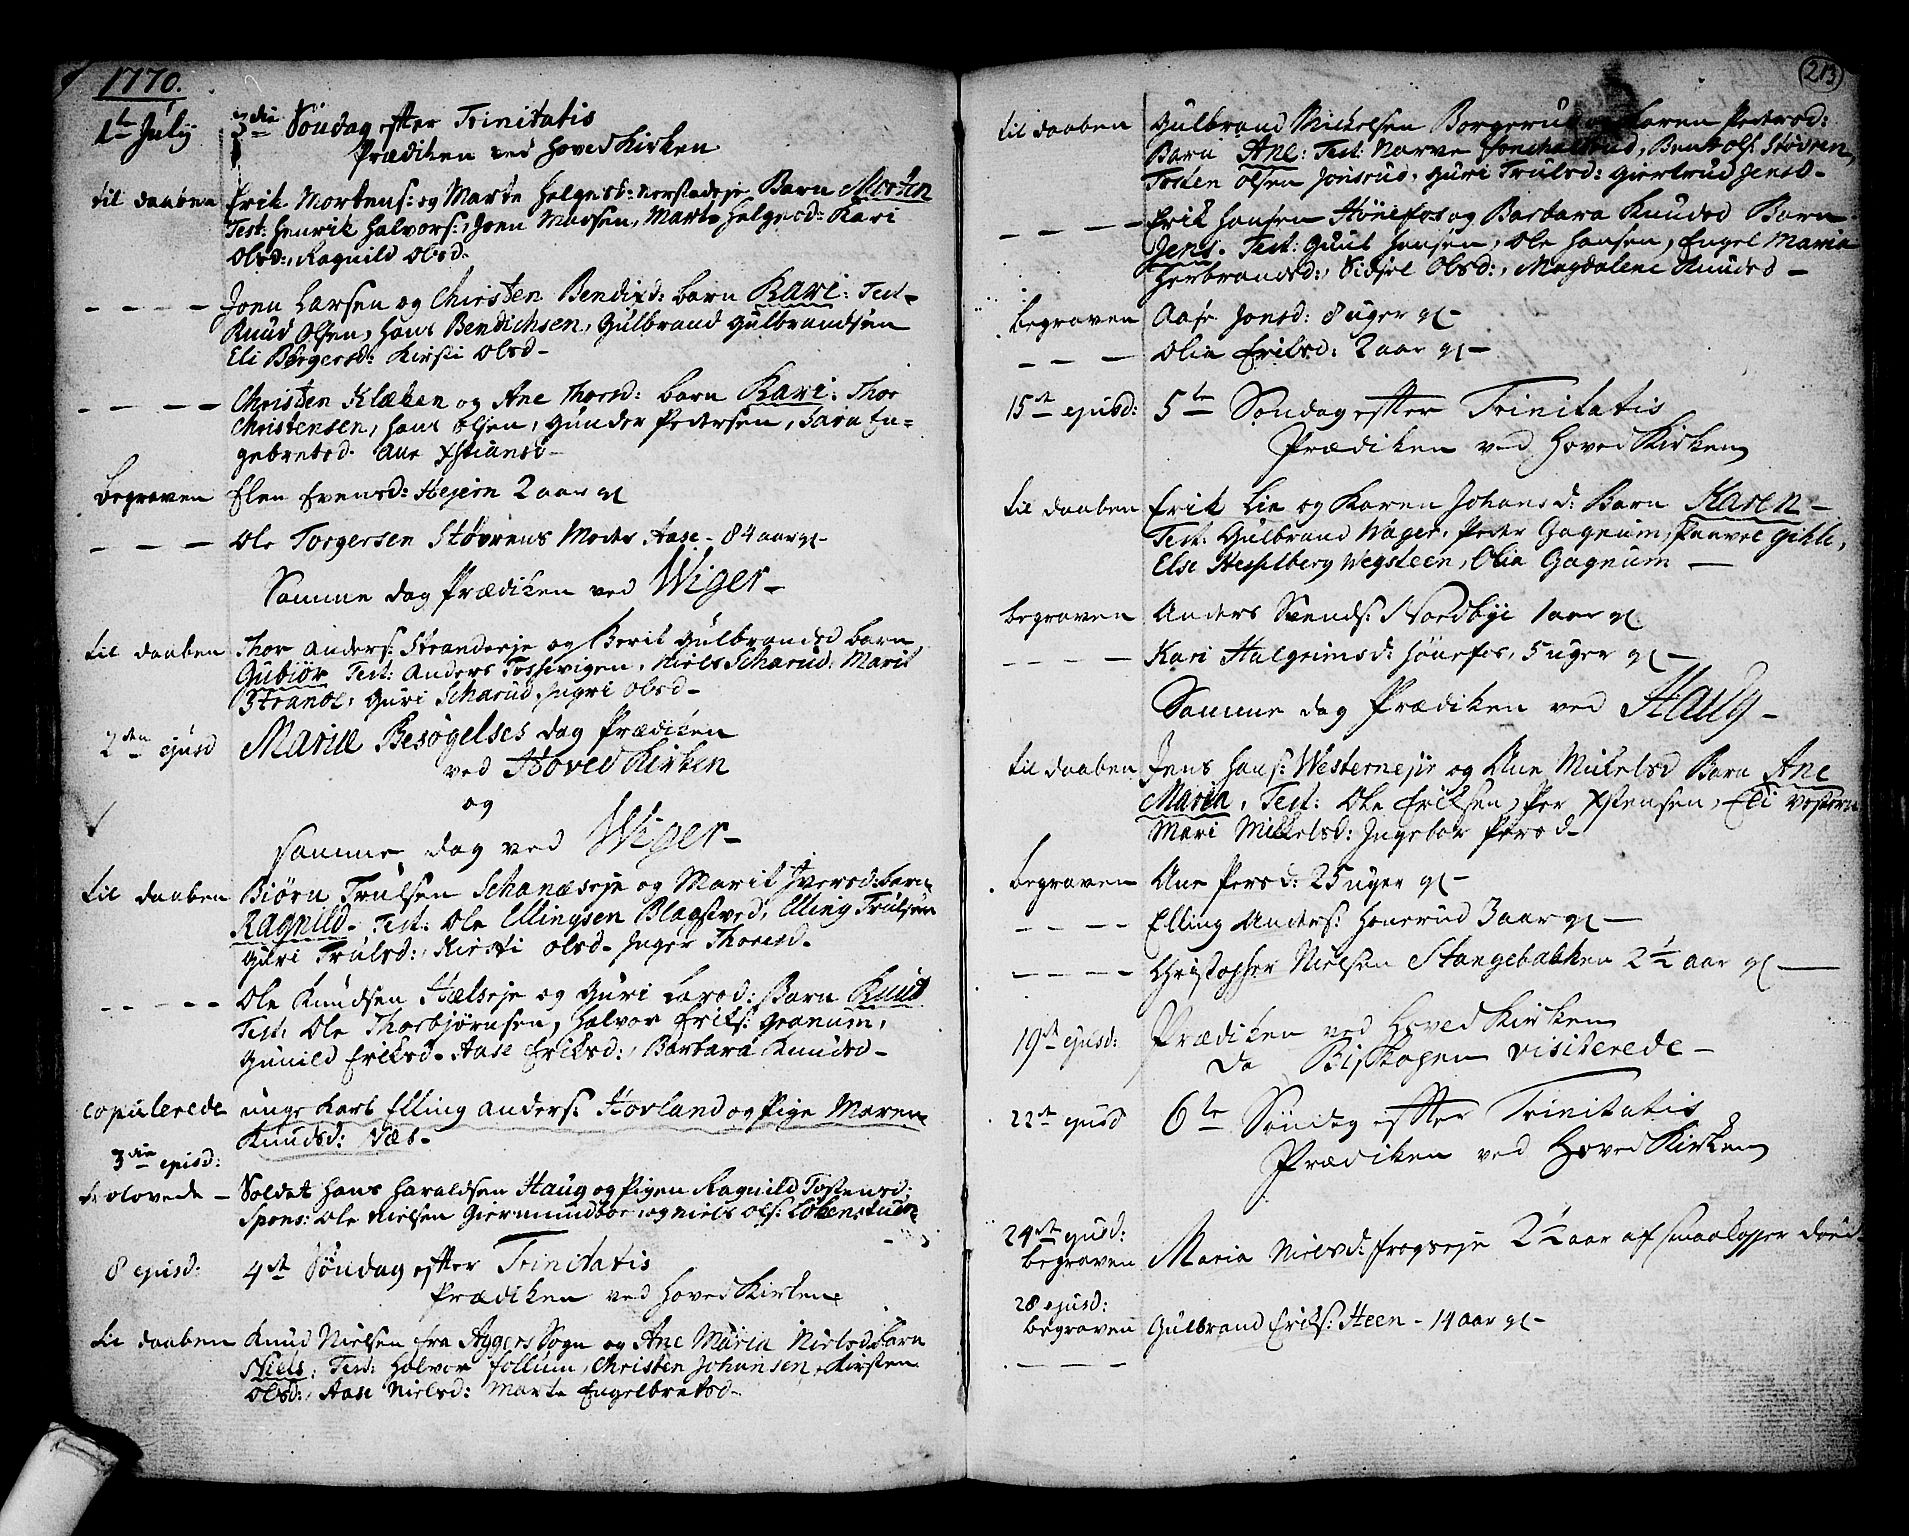 1770.
1te July 3die Søndag efter Trinitatis
Prædiken ved Hoved Kirken
til daaben Erik Mortens: og Marte Helgesd: Barn Morten
Test: Henrik Halvors:, Joen Madsen, Marte Helgesd: Kari
Olsd:, Ragnild Olsd.
- - - - Joen Larsen og Chirsten Bendixd: barn Kari: Test-
Knud Olsen, Hans Bendichsen, Gulbrand Gulbrandsen
Eli Børgersd: Kirsti Olsd-
- - - - Christen Klæken og Ane Thorsd: barn Kari: Thor
Christensen, Hans Olsen, Gunder Pedersen, Sara En=
gebretsd. Ane Xstiansd-
begraven Elen Evensd: Hejern 2 aar gl
- - - Ole Torgersen Støvrens Moder Aase- 84 aar gl-
Samme dag Prædiken ved Wiger-
til daaben Thor Anders: Strandeeje og Berit Gulbrandsd barn
Gubiør Test: Anders Tosse­vigen, Niels Scharud, Marit
Strand, Guri Scharud, Ingri Olsd-
2den ejusd Mariæ Besøgelses dag Prædiken
ved Hoved Kirken
og
samme dag ved Wiger-
til daaben Biørn Trulsen Schanæseje og Marit Iversd: barn
Ragnild- Test: Ole Ellingsen Blagstved, Elling Trulsen
Guri Trulsd:, Kirsti Olsd- Inger Thoresd-
- - - - Ole Knudsen Hælseje og Guri Larsd: Barn Knud
Test: Ole Thorbjørnsen, Halvor Eriks: Granum,
Gunild Eriksd- Aase Eriksd:, Barbara Knudsd-
copulerede unge Karl Elling Anders: Hovland og Pige Maren
Knudsd: Væs-
3die ejusd:
trolovede - Soldat Hans Haraldsen Haug og Pigen Ragnild Tostensd:
Spons: Ole Nielsen Giermundboe, og Niels Ols:
8 ejusd: 4de Søndag efter Trinitatis
Prædiken ved Hoved Kirken
til daaben Knud Nielsen fra Aggers Sogn og Ane Maria Nielsd barn
Niels: Test: Halvor Follum, Christen Johansen, Kirsten
Olsd:, Aase Nielsd: Marte Engelbretsd-
213
til daaben Gulbrand Mickelsen Borgerud og Karen Pedersd:
Barn Ane: Test: Narve Bent Ols: Støvren,
Tosten Olsen Jonsrud, Guri Trulsd: Giertrud Jensd-
- - - - Erik Hansen Hønefos og Barbara Knudsd Barn
Jens. Test: Guul Hansen, Ole Hansen, Engel Maria
Herbrandsd:, Sidsel Olsd:, Magdalene Knudsd-
begraven Aase Jonsd: 8 uger gl-
- - - Olia Eriksd: 2 aar gl-
15de ejusd: 5te Søndag efter Trinitatis
Prædiken ved Hoved Kirken
til daaben Erik Lie og Karen Johansd: Barn Karen-
Test: Gulbrand Wager, Peder Gagnum, Paavel Gihle,
Else Hesselberg Wegsteen, Olia Gagnum -
begraven Anders Svends: Nordbye 1 aar gl.
- - - - Kari Halgrimsd: Hønefos, 5 uger gl-
Samme dag Prædiken ved Haug-
til daaben Jens Hans: Westerneje og Ane Mikelsd Barn Ane
Maria, Test: Ole Eriksen, Per Xstensen, Eli Vestern
Mari Mikkelsd: Ingebor Persd-
begraven Ane Persd: 25 uger gl-
- - - - Elling Anders: Honerud 3 aar gl-
- - - - Christopher Nielsen Stangebakken 2 1/2 aar gl -
19de ejusd: Prædiken ved Hoved Kirken
da Biskopen visiterede-
22de ejusd 6te Søndag efter Trinitatis
Prædiken ved Hoved Kirken
24de ejusd:
begraven Maria Nielsd: Frogseje 2 1/2 aar af smaakopper død
28 ejusd:
begraven Gulbrand Eriks: Heen- 14 aar gl-
- - - -